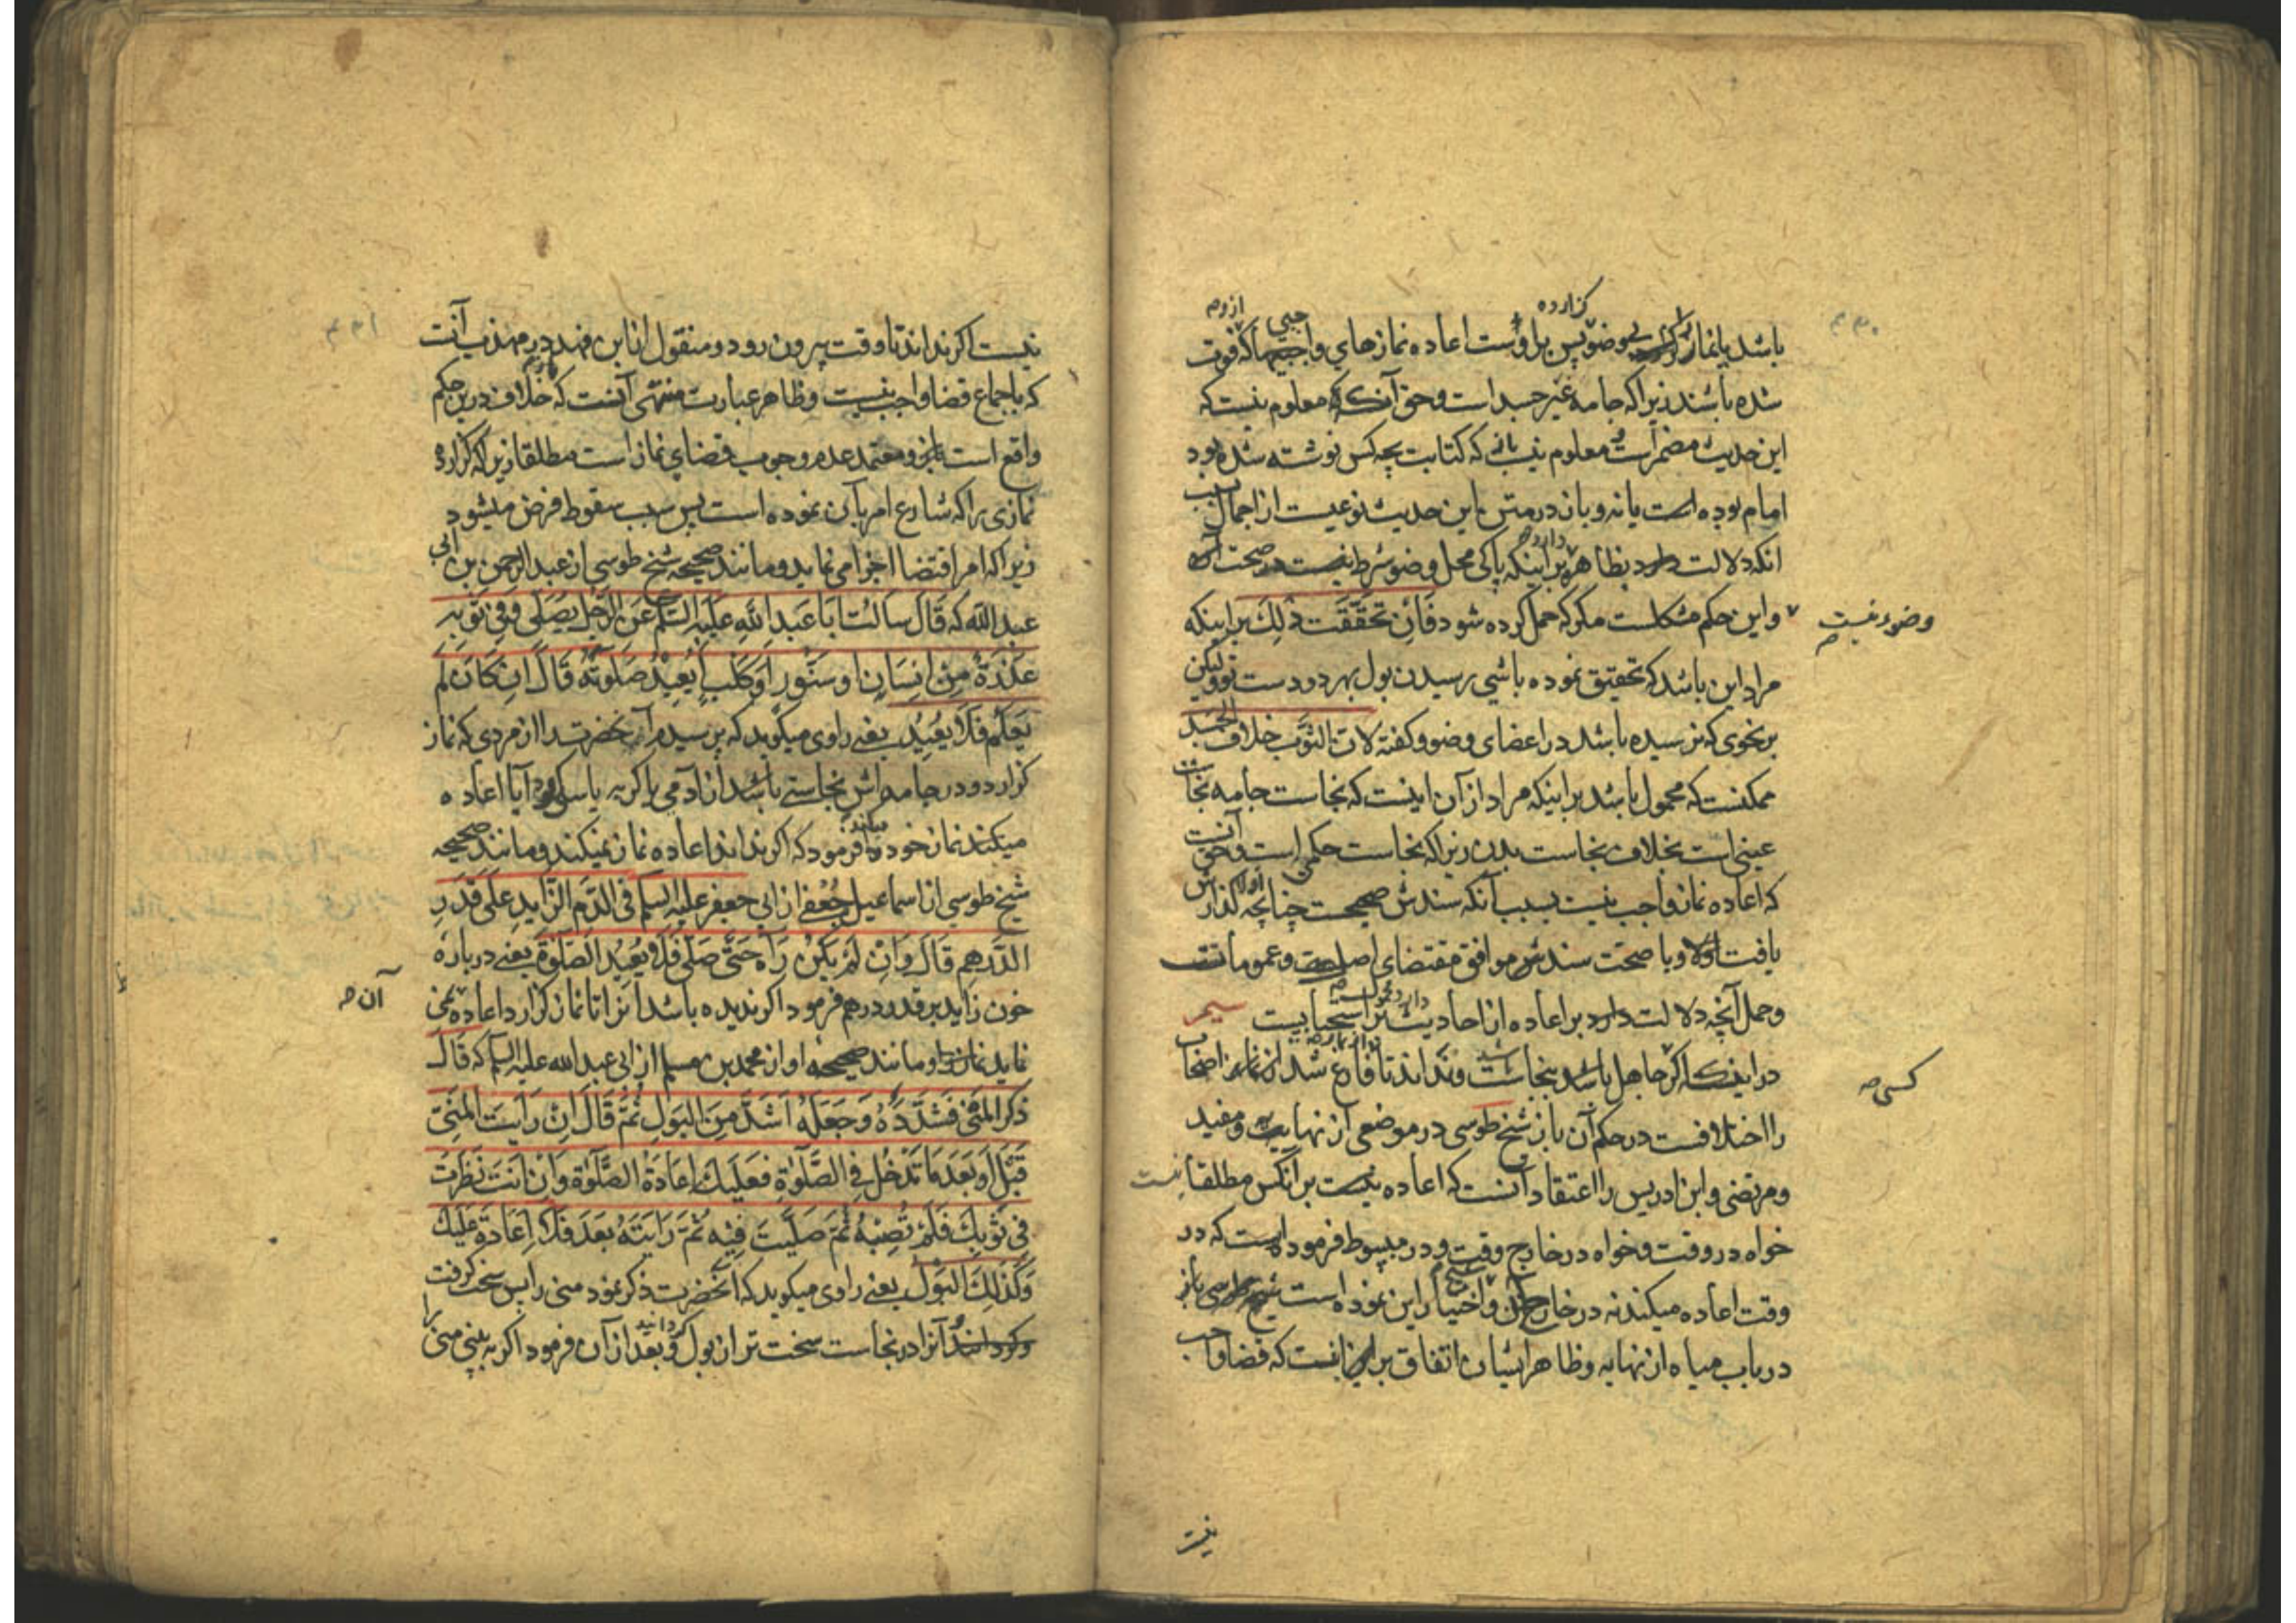 باشد یا نماز بی وضو پس براوست اعاده نمازهای واجبی که فوت
گزارده
ازو صح
شده باشند زیرا که جامه غیر جسد است و حق آنکه معلوم نیست که
این حدیث مضمر است و معلوم نیست که کتابت بچه کس نوشته شده بود
امام بوده است یا نه و باز در متن این حدیث نوعیست از اجمال
آنکه دلالت دارد بظاهر بر اینکه پاکی محل وضو شرط نیست در صحت
وضوء نیست صح
و این حکم مشکلست مگر که حمل کرده شود فان تحققت ذلک بر اینکه
مراد این باشد که تحقیق نموده باشی رسیدن بول بهر دو دست تو ولیکن
بر نحوی که نرسیده باشد در اعضای وضو و گفته لان الثوب خلاف الجسد
ممکنست که محمول باشد بر اینکه مراد از آن اینست که نجاست جامه نجاست
عینی است بخلاف نجاست بدن زیرا که نجاست حکمی است و حق آنست
که اعاده نماز واجب نیست بسبب آنکه سندش صحیحست چنانچه گذارش
یافت اولا و با صحت سندش موافق مقتضای اصلست و عمومات
و حمل آنچه دلالت دارد بر اعاده از احادیث بر استحبابیست
در اینکه اگر جاهل باشد بنجاست و نداند تا فارغ شد از نماز اصحاب
کسی صح
را اختلافست در حکم آن باز شیخ طوسی در موضعی از نهایه و مفید
و مرتضی و ابن ادریس را اعتقاد آنست که اعاده نیست بر آنکس مطلقا
خواه در وقت و خواه در خارج وقت و در مبسوط فرموده است که در
وقت اعاده میکند نه در خارج آن و اختیار این نموده است شیخ طوسی باز
در باب میاه از نهایه و ظاهر ایشان اتفاق بر اینست که قضا واجب
نیست
نیست اگر نداند تا وقت بیرون رود و منقول از ابن فهد در مهذب آنست
که باجماع قضا واجب نیست و ظاهر عبارت منتهی آنست که خلاف درین حکم
واقع است و معتمد عدم وجوب قضای نماز است مطلقا زیرا که گزارده
نمازی را که شارع امر بآن نموده است پس سبب سقوط فرض میشود
زیرا که امر اقتضا اجزا می نماید و مانند صحیحه شیخ طوسی از عبدالرحمن بن ابی
عبدالله که قَالَ سَاَلْتُ اَبَا عَبدِ اللهِ عَلَیْهِ السَّلَم عَنِ الرَّجُلِ یُصَلّی وَفِی ثَوْبِهِ
عَذِرَةٌ مِنْ اِنسَانٍ او سِنَّوْرٍ اَوْ کَلْبٍ اَیُعِیْدُ صَلوٰتَهُ قَالَ اِن کَانَ لَم
یَعْلَمْ فَلَا یُعِیْدُ یعنی راوی میگوید که پرسیدم آن حضرت را از مردی که نماز
گزارد و در جامه اش نجاستی باشد از آدمی یا گربه یا سگ آیا اعاده
میکند نماز خود را فرمود که اگر نداند اعاده نماز نمیکند و مانند صحیحه
شیخ طوسی از اسماعیل جُعْفِی از ابی جعفر علیه السلم فی الدَّمِ الزَّایِدِ عَلَی قَدْرِ
الدِّرهم قَالَ وَاِنْ لَمْ یَکُنْ رَآهُ حَتّی صَلّی فَلَا یُعِیْدُ الصَّلوٰةَ یعنی درباره
خون زاید بر قدر درهم فرمود اگر ندیده باشد آنرا تا نماز گزارد اعاده نمی
آن صح
نماید نماز را و مانند صحیحه او از محمد بن مسلم از ابی عبدالله علیه السلم که قَالَ
ذَکَرَ المَنِیَّ فَشَدَّدَهُ وَجَعَلَهُ اَشَدَّ مِنَ البَولِ ثُمَّ قَالَ اِنْ رَاَیتَ المَنِیَّ
قَبْلُ اَوْ بَعْدَ مَا تَدْخُلُ فِی الصَّلوٰةِ فَعَلَیکَ اِعَادَةُ الصَّلوٰةِ وَاِنْ اَنتَ نَظَرْتَ
فِی ثَوْبِکَ فَلَمْ تُصِبْهُ ثُمَّ صَلَّیْتَ فِیْهِ ثُمَّ رَاَیتَهُ بَعْدُ فَلَا اِعَادَةَ عَلَیْکَ
وَکَذٰلِکَ البَوْلُ یعنی راوی میگوید که آنحضرت ذکر نمود منی را پس سخت گرفت
و گردانید آنرا در نجاست سخت تر از بول و بعد از آن فرمود اگر به بینی منی را